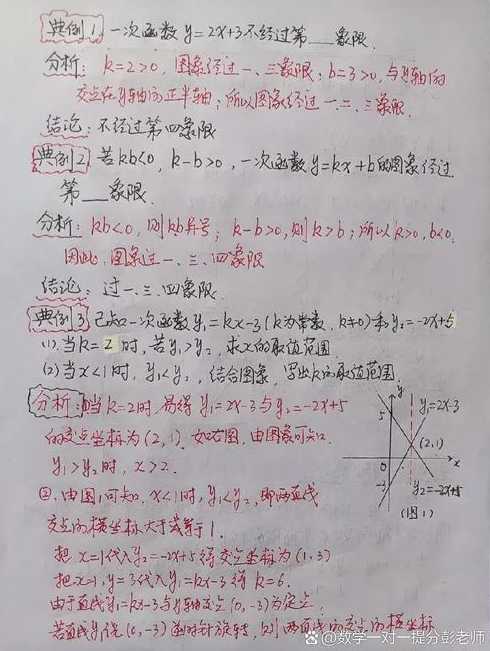 典例1 一次函数y=2x+3不经过第__象限.
分析: k=2>0, 图象经过一、三象限; b=3>0, 与y轴的
交点在y轴的正半轴; 所以图象经过一、二、三象限.
结论: 不经过第四象限
典例2 若kb<0, k-b>0, 一次函数y=kx+b的图象经过
第__象限.
分析: kb<0, 则kb异号; k-b>0, 则k>b; 所以k>0, b<0.
因此, 图象过一、三、四象限
结论: 过一、三、四象限.
典例3 已知一次函数y₁=kx-3(k为常数, k≠0)和y₂=-2x+5
(1)当k=2时, 若y₁>y₂, 求x的取值范围
(2)当x<1时, y₁<y₂, 结合图象, 写出k的取值范围.
分析: ①当k=2时, 易得y₁=2x-3与y₂=-2x+5
的交点坐标为(2,1). 如右图, 由图象可知
y₁>y₂时, x>2.
②, 由图1可知, x<1时, y₁<y₂, 即两直线
交点的横坐标大于或等于1.
把x=1代入y₂=-2x+5得交点坐标为(1,3)
把x=1, y=3代入y₁=kx-3得k=6.
由于直线y₁=kx-3与y轴交点(0,-3)为定点,
若直线y₁绕(0,-3)逆时针旋转, 则两直线的交点的横坐标
y
y₁=2x-3
5
(2,1)
0
x
-3
y₂=-2x+5
(图1)
@数学一对一提分彭老师